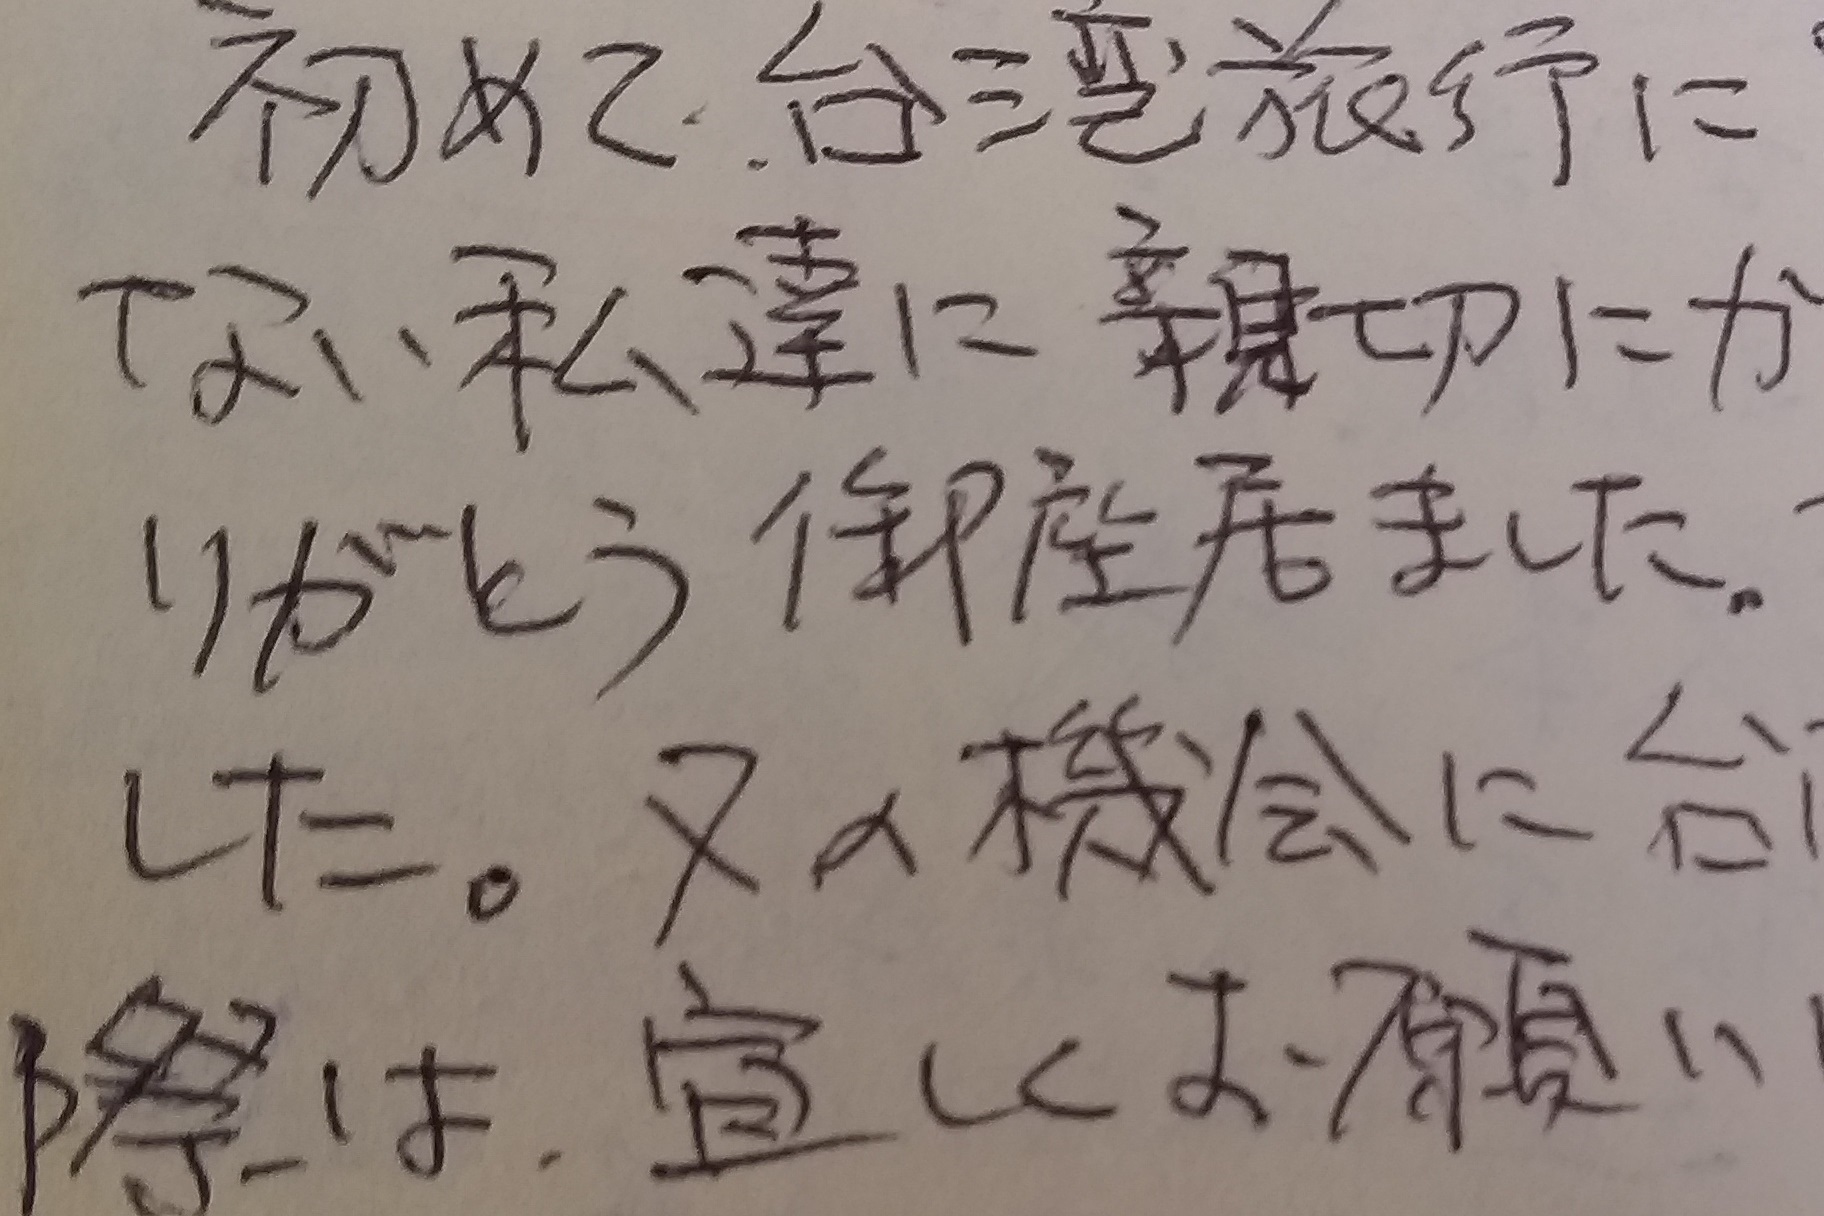 初めて.台湾旅行に
ない私達に親切にか
りがとう御座居ました。
した。又の機会に台
際は.宜しくお願い